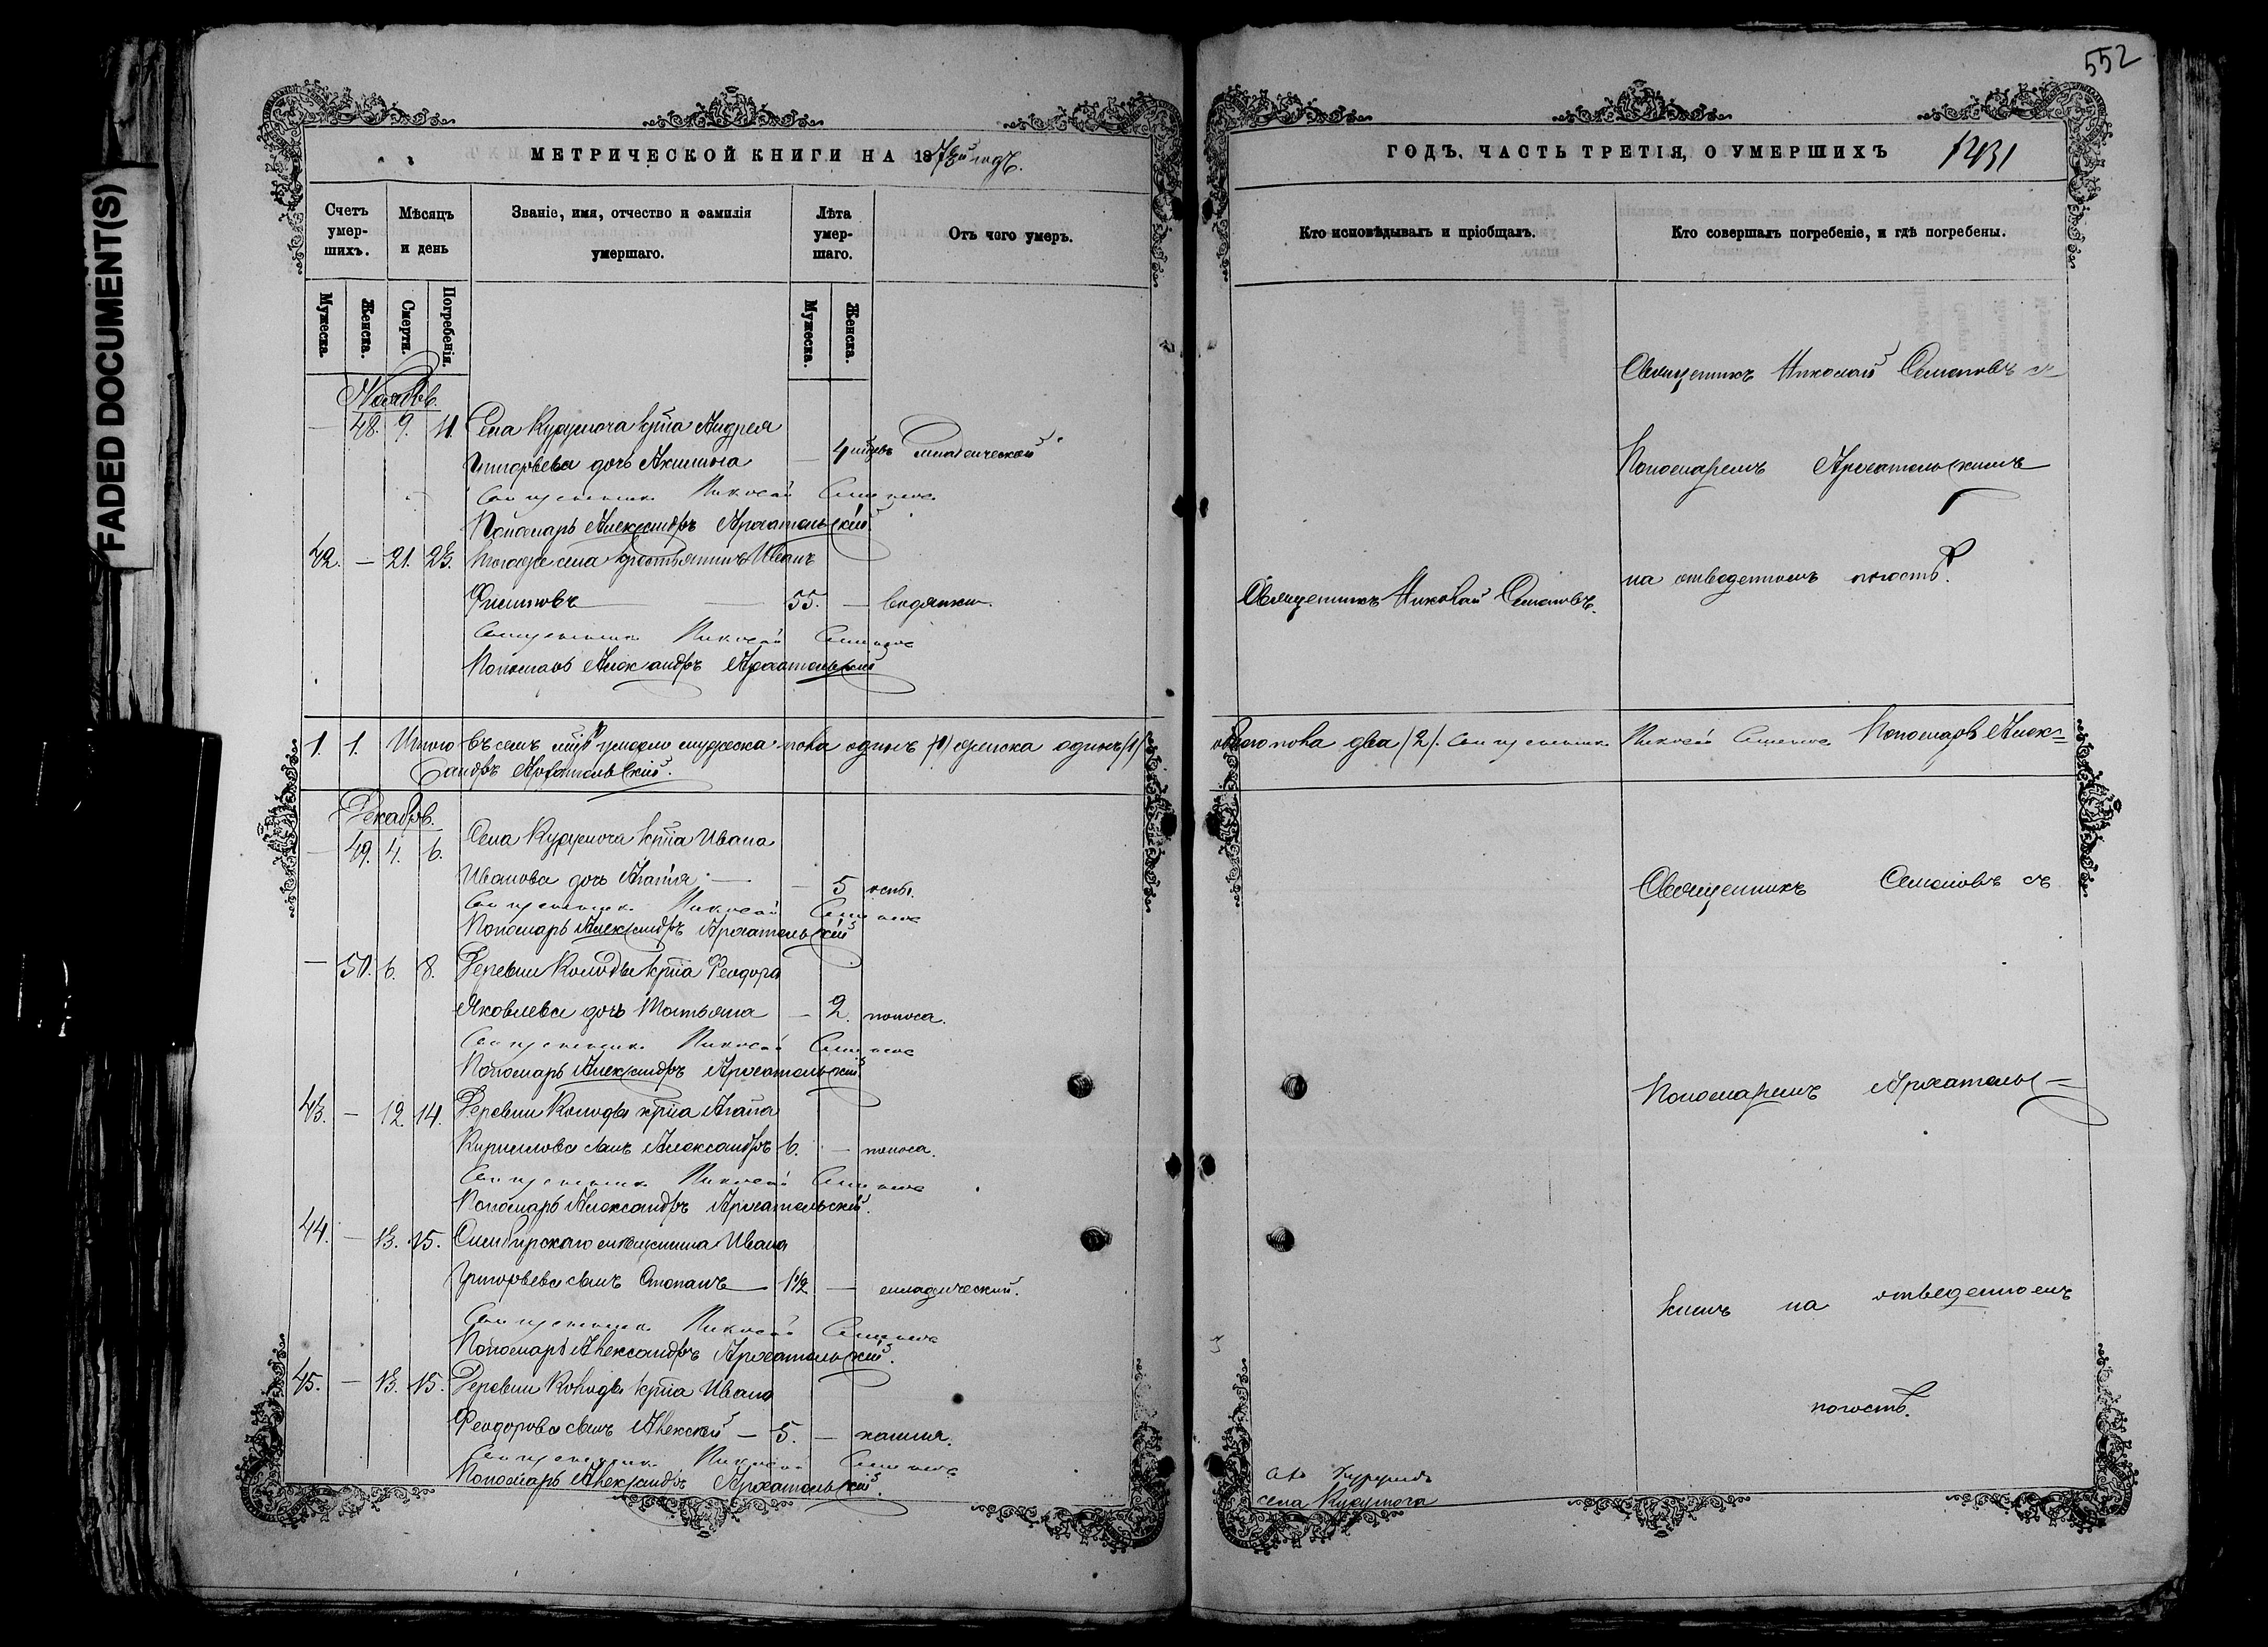 552
FADED DOCUMENT(S)
МЕТРИЧЕСКОЙ КНИГИ НА 18 годъ.
ГОДЪ, ЧАСТЬ ТРЕТІЯ, О УМЕРШИХЪ 1231
Счетъ умер-шихъ.
Мѣсяцъ и день
Званіе, имя, отчество и фамилія умершаго.
Лѣта умер-шаго.
Отъ чего умеръ.
Кто исповѣдывалъ и пріобщалъ.
Кто совершалъ погребеніе, и гдѣ погребены.
Мужеска.
Женска.
Смерти.
Погребенія.
Мужеска.
Женска.
Ноябрь.
— 48. 9. 11. Села Курумоча крⷭ҇тна Андрея
Григорьева дочь Акилина — 4 младенческой
Священникъ Николай Семеновъ
Пономарь Александръ Архангельскій
42. — 21. 23. Тогоже села крестьянинъ Иванъ
Филиповъ — 55. — водянки.
Священникъ Николай Семеновъ
Пономарь Александръ Архангельскій
Священникъ Николай Семеновъ.
Священникъ Николай Семеновъ съ
Пономаремъ Архангельскимъ
на отведенномъ погостѣ.
1. 1. Итого въ семъ мцѣ умерло мужеска пола одинъ /1/ женска одинъ /1/
обоего пола два /2/. Священникъ Николай Семеновъ Пономарь Алек=
сандръ Архангельскій.
Декабрь.
— 49. 4. 6. Села Курумоча Ивана
Иванова дочь Агапія — — 5 оспы.
Священникъ Николай Семеновъ
Пономарь Александръ Архангельскій
— 50. 6. 8. Деревни Колоды Феодора
Яковлева дочь Татьяна — 2. поноса.
Священникъ Николай Семеновъ
Пономарь Александръ Архангельскій
43. — 12. 14. Деревни Колоды Агапа
Кирилова сынъ Александръ 6. — поноса.
Священникъ Николай Семеновъ
Пономарь Александръ Архангельскій.
44. — 13. 15. Симбирскаго мѣщанина Ивана
Григорьева сынъ Степанъ — 1 1/2 — младенческій.
Священникъ Николай Семеновъ
Пономарь Александръ Архангельскій.
45. — 13. 15. Деревни Колоды Ивана
Феодорова сынъ Алексей — 5. — кашля.
Священникъ Николай Семеновъ
Пономарь Александръ Архангельскій.
Священникъ Семеновъ съ
Пономаремъ Архангель=
скимъ на отведенномъ
погостѣ.
села Курумоча